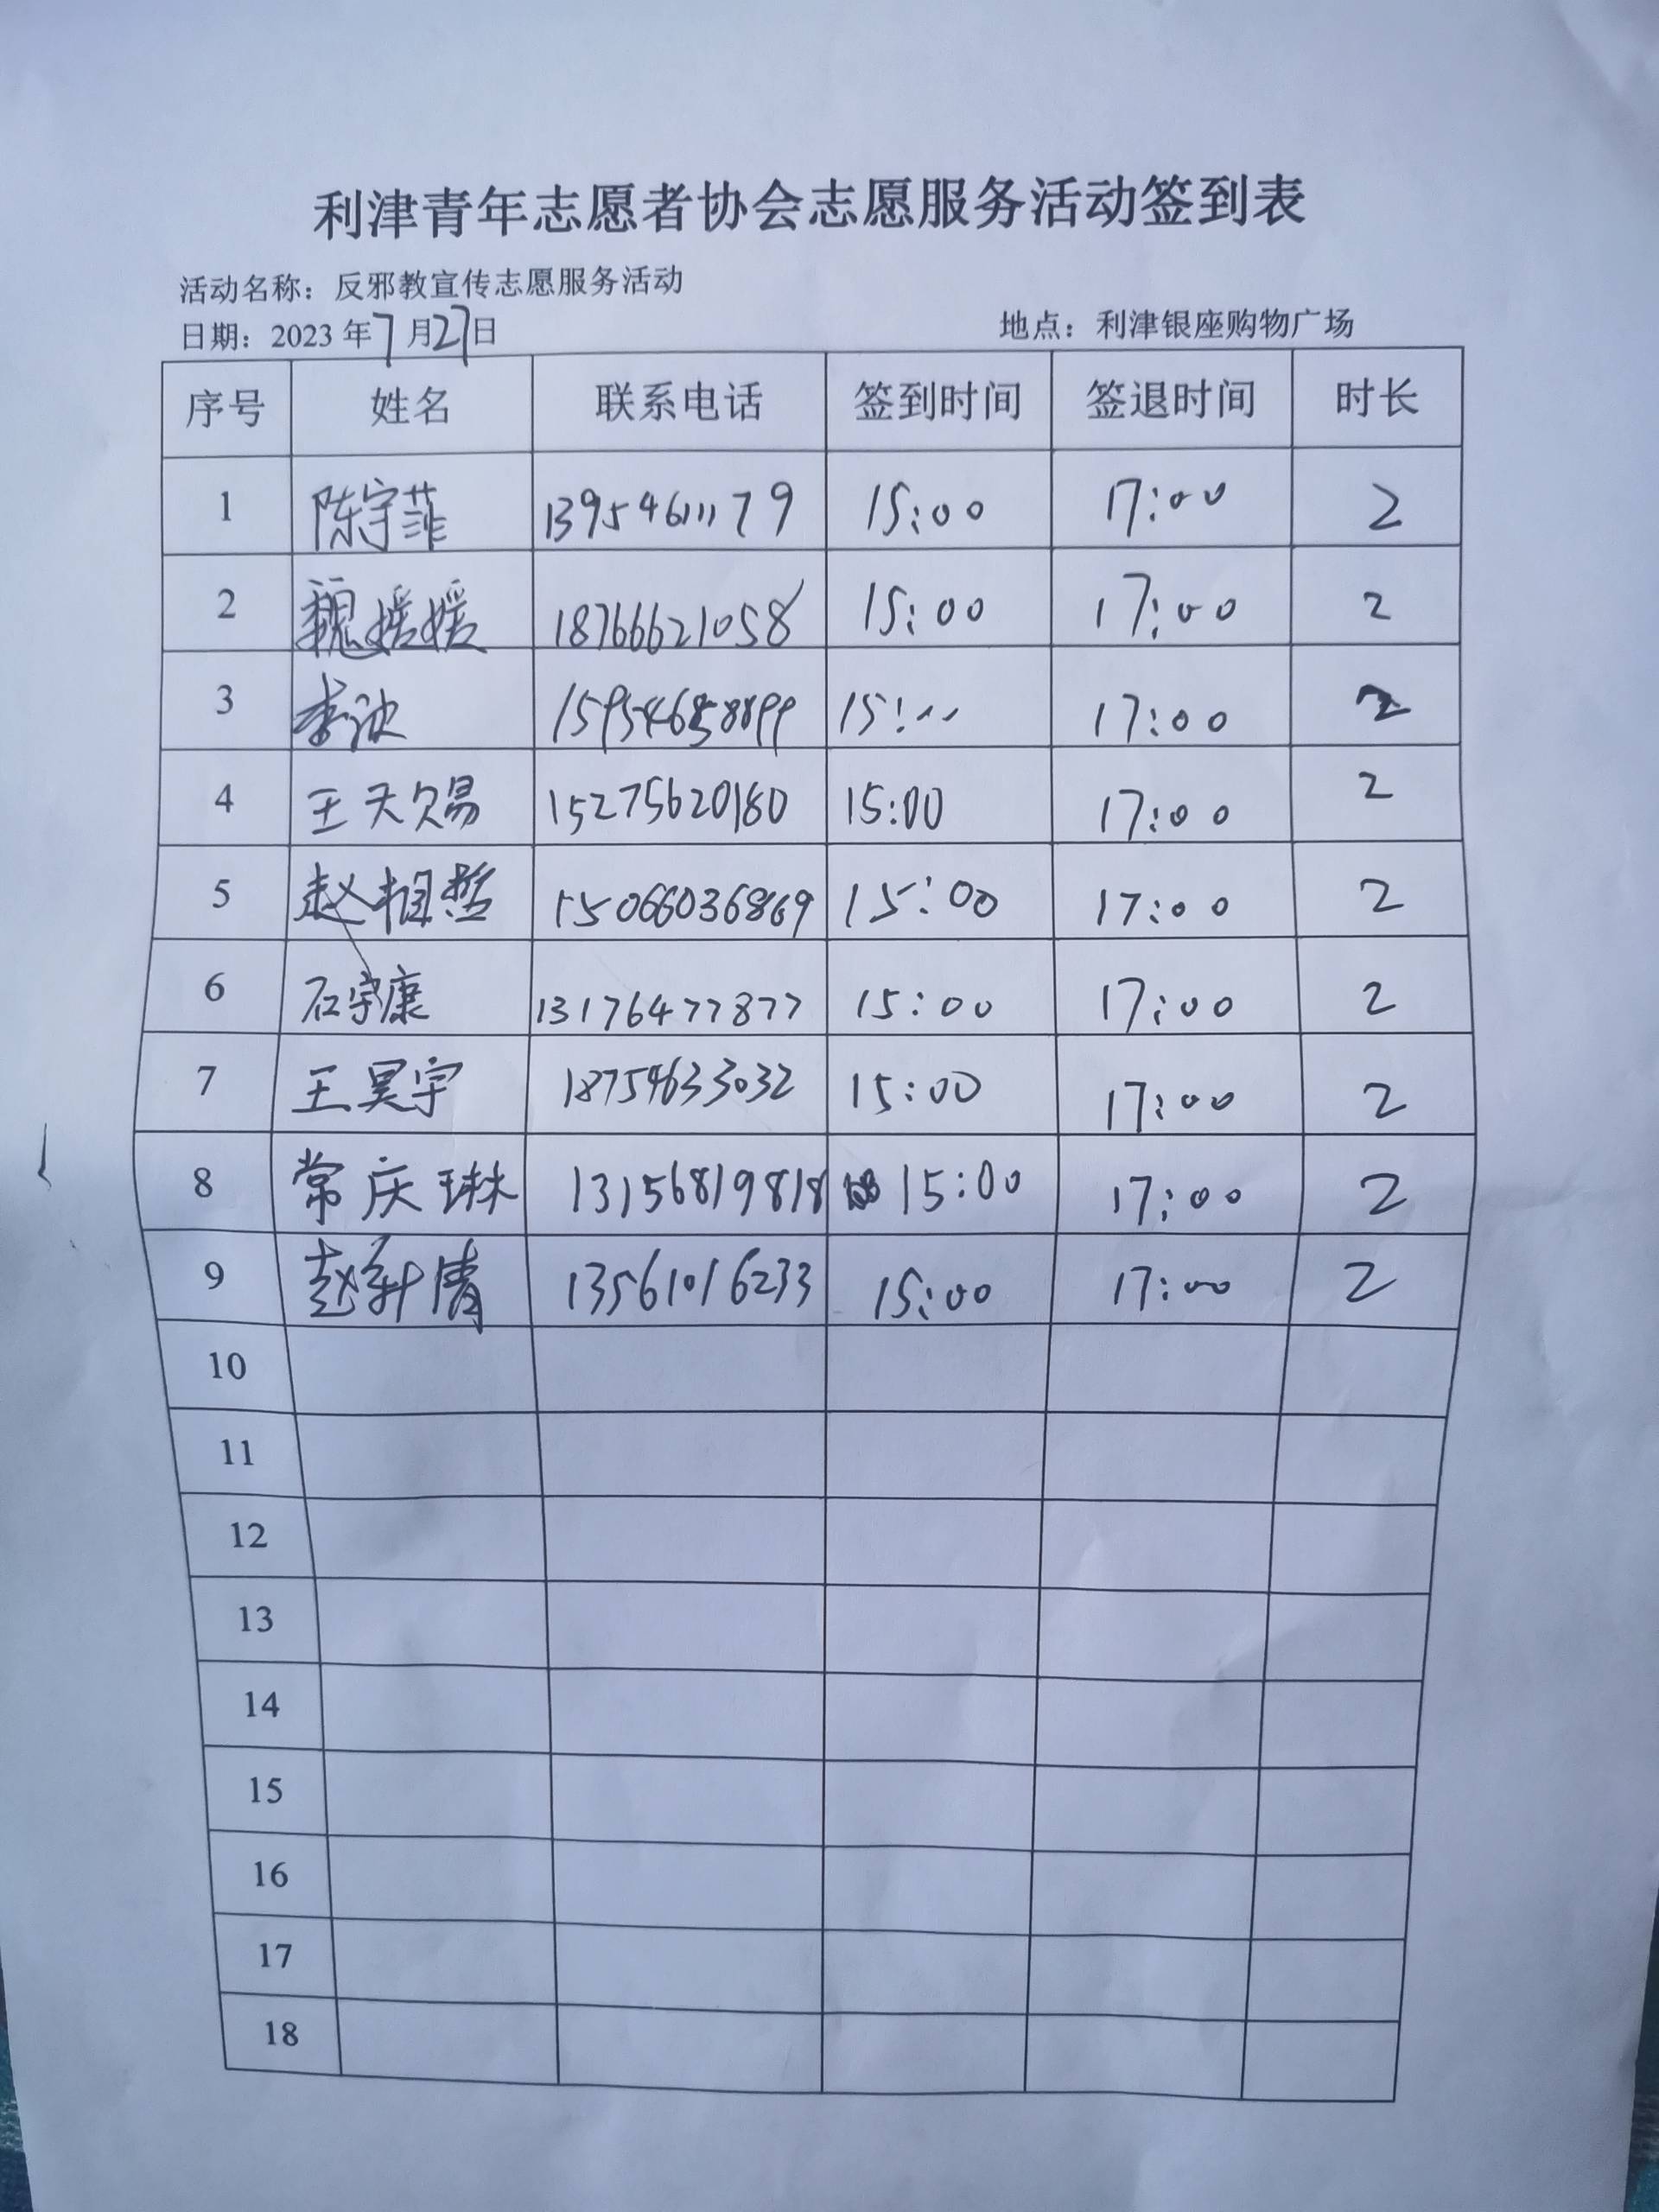 利津青年志愿者协会志愿服务活动签到表
活动名称：反邪教宣传志愿服务活动
日期：2023年7月27日 地点：利津银座购物广场
序号 姓名 联系电话 签到时间 签退时间 时长
1 陈宇菲 13954611179 15:00 17:00 2
2 魏媛媛 18766621058 15:00 17:00 2
3 李波 15:00 17:00 2
4 王天赐 15275620180 15:00 17:00 2
5 赵相哲 15066036869 15:00 17:00 2
6 石宇康 13176477877 15:00 17:00 2
7 王昊宇 18754633032 15:00 17:00 2
8 常庆琳 13156819818 15:00 17:00 2
9 赵轩倩 13561016233 15:00 17:00 2
10
11
12
13
14
15
16
17
18